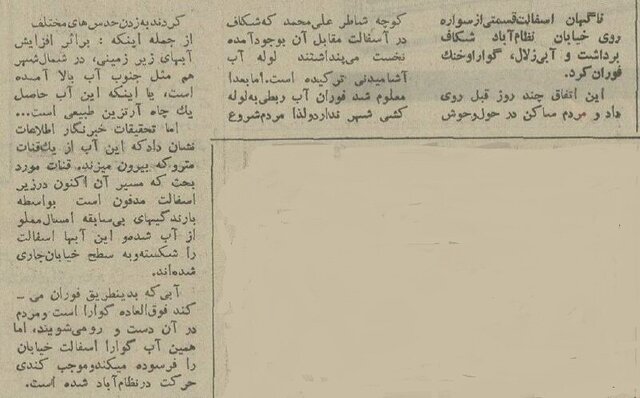 ناگهان اسفالت‌قسمتی‌از‌سواره
روی خیابان نظام‌آباد شکاف
برداشت و آبی‌زلال، گوارا‌و‌خنك
فوران‌کرد.
این اتفاق چند روز قبل روی
داد و مردم ساکن در حول‌و‌حوش
کوچه شاطر علی‌محمد که‌شکاف
در آسفالت مقابل آن بوجود‌آمده
نخست می‌پنداشتند لوله آب
آشامیدنی ترکیده است.اما‌بعدا
معلوم شد فوران آب ربطی‌به‌لوله
کشی شهر ندارد‌ولذا مردم‌شروع
کردند‌به‌زدن‌حدس‌های‌مختلف
از جمله اینکه : براثر افزایش
آبهای زیر زمینی، در شمال‌شهر
هم مثل جنوب آب بالا آمده
است، یا اینکه این آب حاصل
یك چاه آرتزین طبیعی است...
اما تحقیقات خبرنگار اطلاعات
نشان داد‌که این آب از یك‌قنات
متروکه بیرون میزند. قنات مورد
بحث که مسیر آن اکنون در‌زیر
اسفالت مدفون است بواسطه
بارندگیهای بی‌سابقه امسال‌مملو
از آب شده‌و این آبها اسفالت
را شکسته‌و‌به سطح خیابان‌جاری
شده‌اند.
آبی‌که بدینطریق فوران می ـ
کند فوق‌العاده گوارا است و‌مردم
در آن دست و رو‌می‌شویند، اما
همین آب گوارا اسفالت خیابان
را فرسوده میکند‌و‌موجب کندی
حرکت در‌نظام‌آباد شده است.